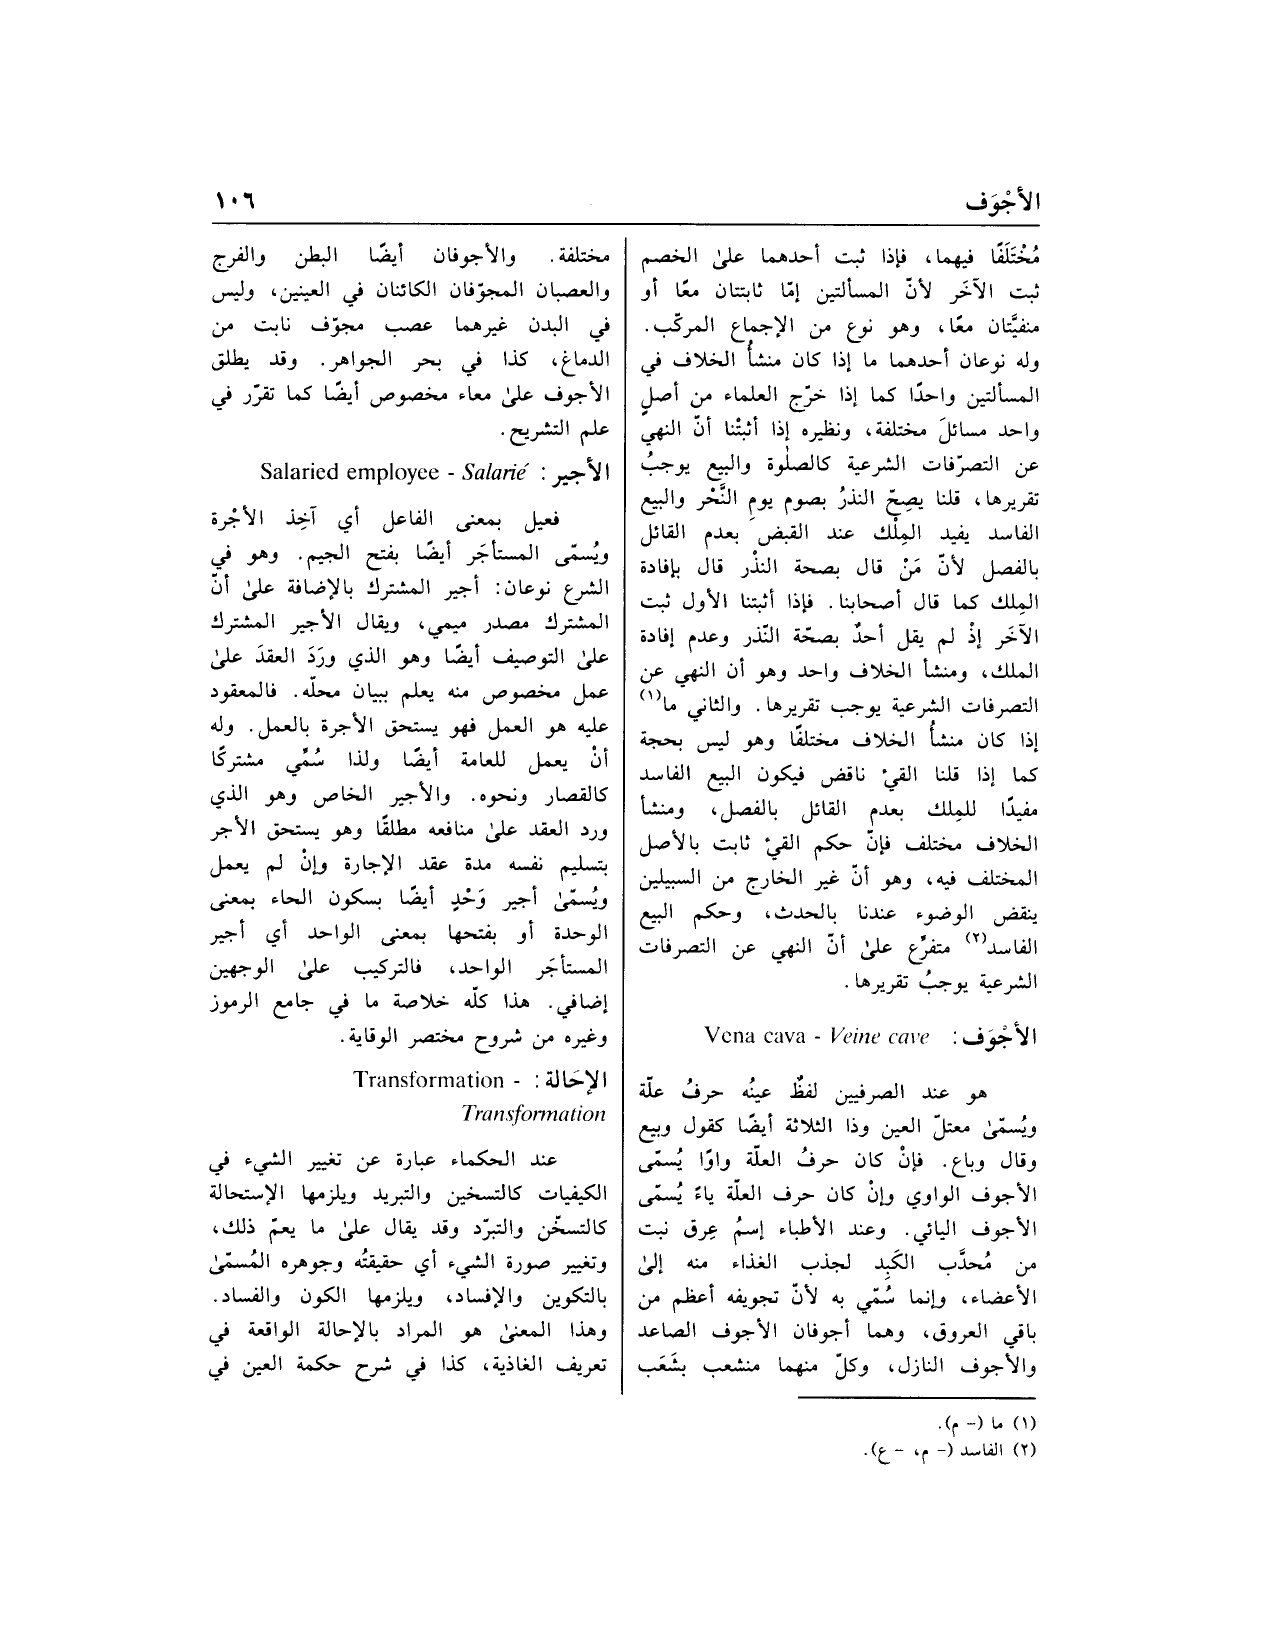 الأجْوَف
١٠٦
مُخْتَلَفًا فيهما، فإذا ثبت أحدهما علىٰ الخصم
ثبت الآخر لأنّ المسألتين إمّا ثابتتان معًا أو
منفيَّتان معًا، وهو نوع من الإجماع المركّب.
وله نوعان أحدهما ما إذا كان منشأُ الخلاف في
المسألتين واحدًا كما إذا خرّج العلماء من أصلٍ
واحد مسائلَ مختلفة، ونظيره إذا أثبتْنا أنّ النهي
عن التصرّفات الشرعية كالصلٰوة والبيع يوجبُ
تقريرها، قلنا يصِحّ النذرُ بصوم يومِ النَّحْر والبيع
الفاسد يفيد المِلْك عند القبض بعدم القائل
بالفصل لأنّ مَنْ قال بصحة النذْر قال بإفادة
المِلك كما قال أصحابنا. فإذا أثبتنا الأول ثبت
الآخر إذْ لم يقل أحدٌ بصحّة النّذر وعدم إفادة
الملك، ومنشأ الخلاف واحد وهو أن النهي عن
التصرفات الشرعية يوجب تقريرها. والثاني ما(١)
إذا كان منشأُ الخلاف مختلفًا وهو ليس بحجة
كما إذا قلنا القيْ ناقض فيكون البيع الفاسد
مفيدًا للمِلك بعدم القائل بالفصل، ومنشأ
الخلاف مختلف فإنّ حكم القيْ ثابت بالأصل
المختلف فيه، وهو أنّ غير الخارج من السبيلين
ينقض الوضوء عندنا بالحدث، وحكم البيع
الفاسد(٢) متفرّع علىٰ أنّ النهي عن التصرفات
الشرعية يوجبُ تقريرها.
الأجْوَف: Vena cava - Veine cave
هو عند الصرفيين لفظٌ عينُه حرفُ علّة
ويُسمّىٰ معتلّ العين وذا الثلاثة أيضًا كقول وبيع
وقال وباع. فإنْ كان حرفُ العلّة واوًا يُسمّى
الأجوف الواوي وإنْ كان حرف العلّة ياءً يُسمّى
الأجوف اليائي. وعند الأطباء إسمُ عِرق نبت
من مُحدَّب الكَبِد لجذب الغذاء منه إلىٰ
الأعضاء، وإنما سُمّي به لأنّ تجويفه أعظم من
باقي العروق، وهما أجوفان الأجوف الصاعد
والأجوف النازل، وكلّ منهما منشعب بشَعَب
مختلفة. والأجوفان أيضًا البطن والفرج
والعصبان المجوّفان الكائنان في العينين، وليس
في البدن غيرهما عصب مجوّف نابت من
الدماغ، كذا في بحر الجواهر. وقد يطلق
الأجوف علىٰ معاء مخصوص أيضًا كما تقرّر في
علم التشريح.
الأجير: Salaried employee - Salarié
فعيل بمعنى الفاعل أي آخِذ الأجْرة
ويُسمّى المستأجَر أيضًا بفتح الجيم. وهو في
الشرع نوعان: أجير المشترك بالإضافة علىٰ أنّ
المشترك مصدر ميمي، ويقال الأجير المشترك
علىٰ التوصيف أيضًا وهو الذي ورَدَ العقدَ علىٰ
عمل مخصوص منه يعلم ببيان محلّه. فالمعقود
عليه هو العمل فهو يستحق الأجرة بالعمل. وله
أنْ يعمل للعامة أيضًا ولذا سُمِّي مشتركًا
كالقصار ونحوه. والأجير الخاص وهو الذي
ورد العقد علىٰ منافعه مطلقًا وهو يستحق الأجر
بتسليم نفسه مدة عقد الإجارة وإنْ لم يعمل
ويُسمّىٰ أجير وَحْدٍ أيضًا بسكون الحاء بمعنى
الوحدة أو بفتحها بمعنى الواحد أي أجير
المستأجَر الواحد، فالتركيب علىٰ الوجهين
إضافي. هذا كلّه خلاصة ما في جامع الرموز
وغيره من شروح مختصر الوقاية.
الإحَالة: Transformation -
Transformation
عند الحكماء عبارة عن تغيير الشيء في
الكيفيات كالتسخين والتبريد ويلزمها الإستحالة
كالتسخّن والتبرّد وقد يقال علىٰ ما يعمّ ذلك،
وتغيير صورة الشيء أي حقيقتُه وجوهره المُسمّىٰ
بالتكوين والإفساد، ويلزمها الكون والفساد.
وهذا المعنىٰ هو المراد بالإحالة الواقعة في
تعريف الغاذية، كذا في شرح حكمة العين في
(١) ما (- م).
(٢) الفاسد (- م، - ع).